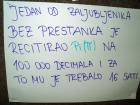 JEDAN OD ZALJUBLJENIKA
BEZ PRESTANKA JE
RECITIRAO PI(π) NA
100 000 DECIMALA I ZA
TO MU JE TREBALO 16 SATI